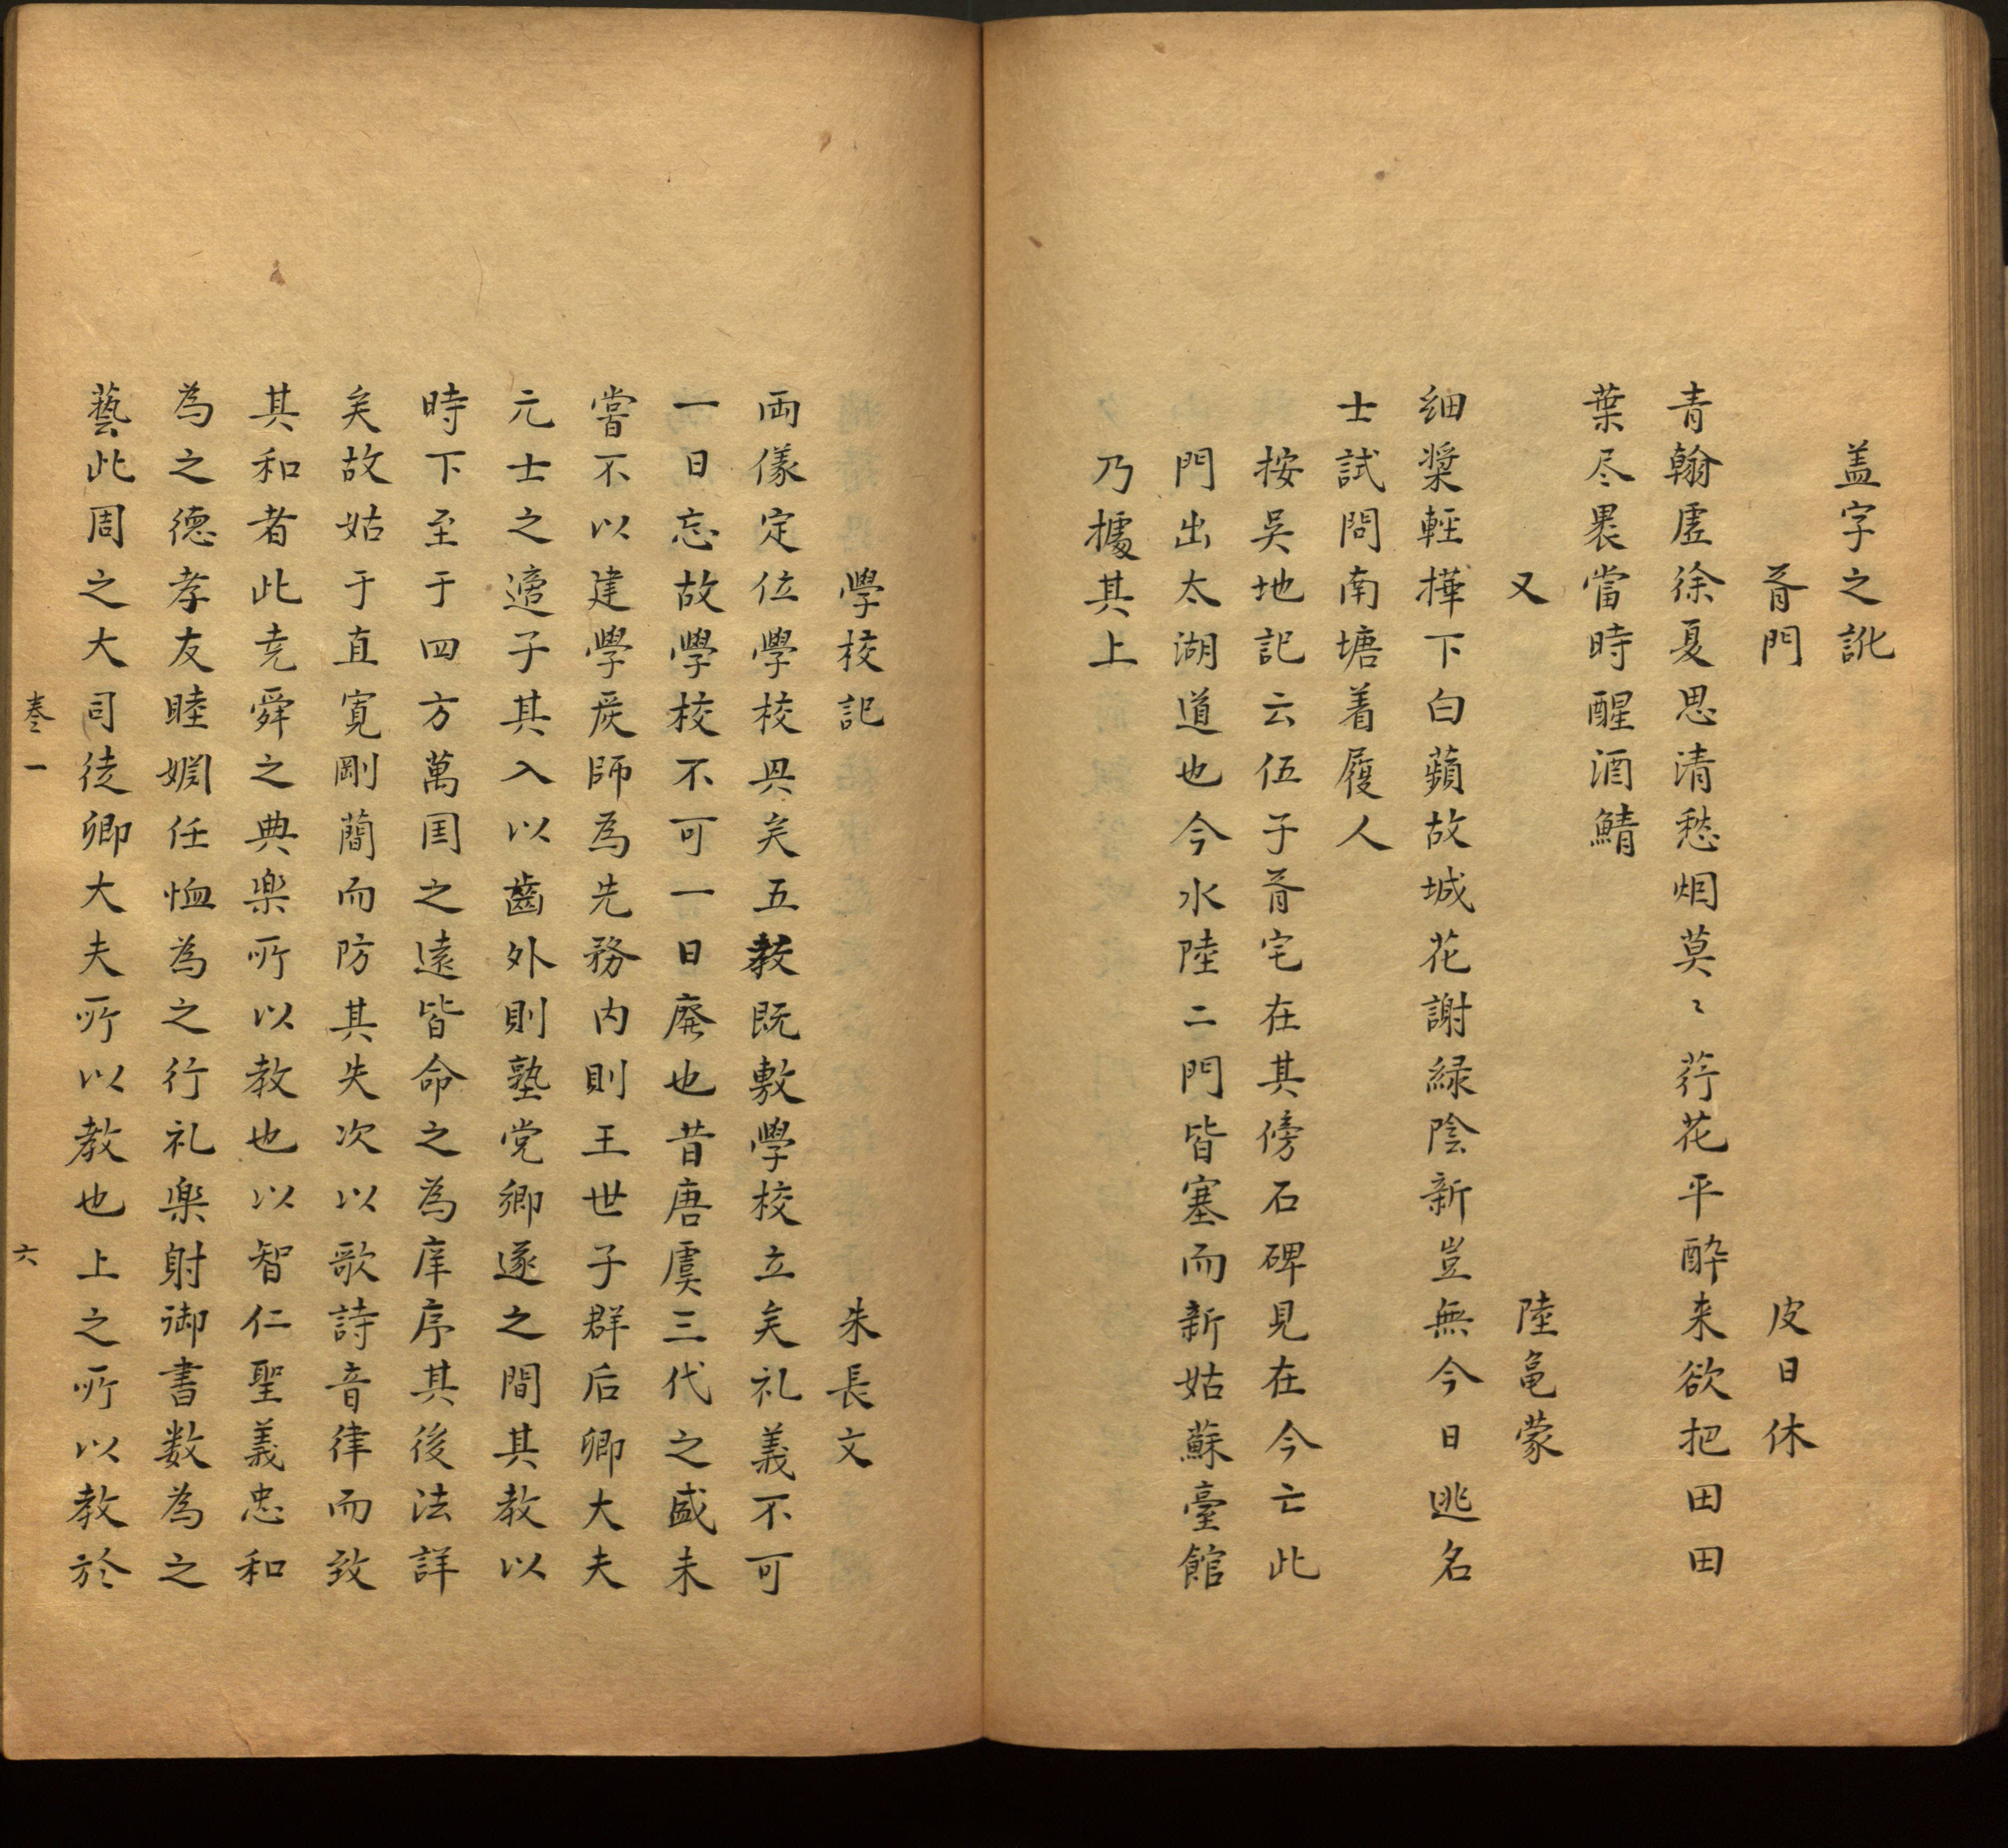 盖字之訛
胥門　皮日休
青翰虚徐夏思清愁烟莫〻荇花平酔来欲把田田
葉尽褁當時醒酒鯖
又　陸亀蒙
细槳輕撶下白蘋故城花謝緑陰新豈無今日逃名
士試問南塘着履人
按吳地記云伍子胥宅在其傍石碑見在今亡此
門出太湖道也今水陸二門皆塞而新姑蘇臺館
乃據其上
學校記　朱長文
両儀定位學校具矣五教既敷學校立矣礼義不可
一日忘故學校不可一日廃也昔唐虞三代之盛未
嘗不以建學庡師為先務内則王世子群后卿大夫
元士之適子其入以齒外則塾党鄉遂之間其教以
時下至于四方萬国之遠皆命之為庠序其後法詳
矣故始于直寬剛蕳而防其失次以歌詩音律而致
其和者此尭舜之典楽所以教也以智仁聖義忠和
為之德孝友睦婣任恤為之行礼楽射御書数為之
藝此周之大司徒卿大夫所以教也上之所以教於
卷一　六